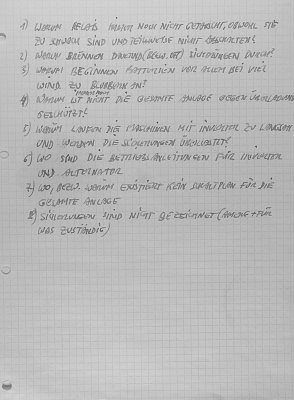 1) WARUM RELAIS IMMER NOCH NICHT GETAUSCHT, OBWOHL SIE
ZU SCHWACH SIND UND TEILWEISE NICHT ABSCHALTEN?
2) WARUM BRENNEN DAUERND (BZW. OFT) SICHERUNGEN DURCH?
3) WARUM BEGINNEN BATTERIEN VOR ALLEM BEI VIEL
WIND ZU BLUBBERN AN?
4) WARUM IST NICHT DIE GESAMTE ANLAGE GEGEN ÜBERLADUNG
GESCHÜTZT?
5) WARUM LAUFEN DIE MASCHINEN MIT INVERTER ZU LANGSAM
UND WERDEN DIE SICHERUNGEN ÜBERLASTET?
6) WO SIND DIE BETRIEBSANLEITUNGEN FÜR INVERTER
UND ALTERNATOR
7) WO, BZW. WARUM EXISTIERT KEIN SCHALTPLAN FÜR DIE
GESAMTE ANLAGE
8) SICHERUNGEN SIND NICHT BEZEICHNET (AMPERE + FÜR
WAS ZUSTÄNDIG)